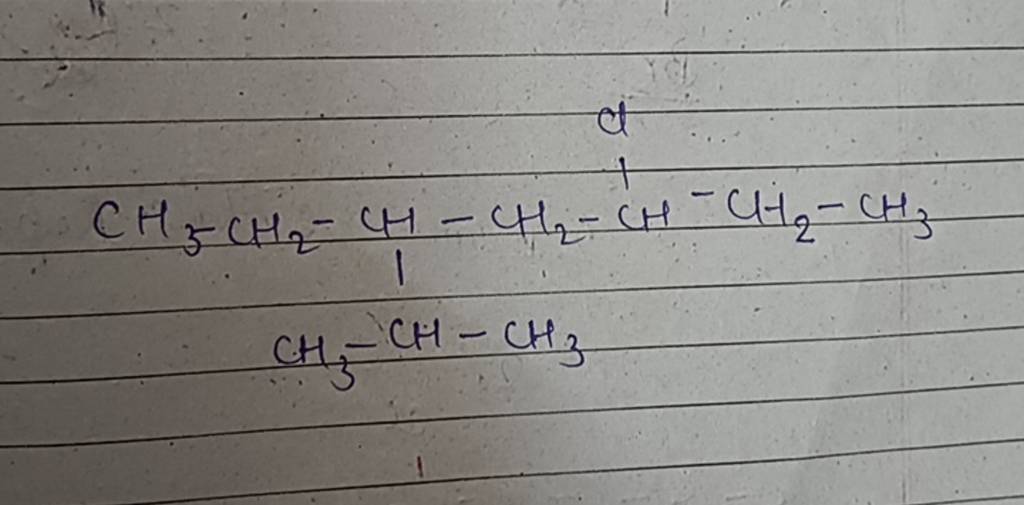 Cl
CH3-CH2-CH-CH2-CH-CH2-CH3
CH3-CH-CH3